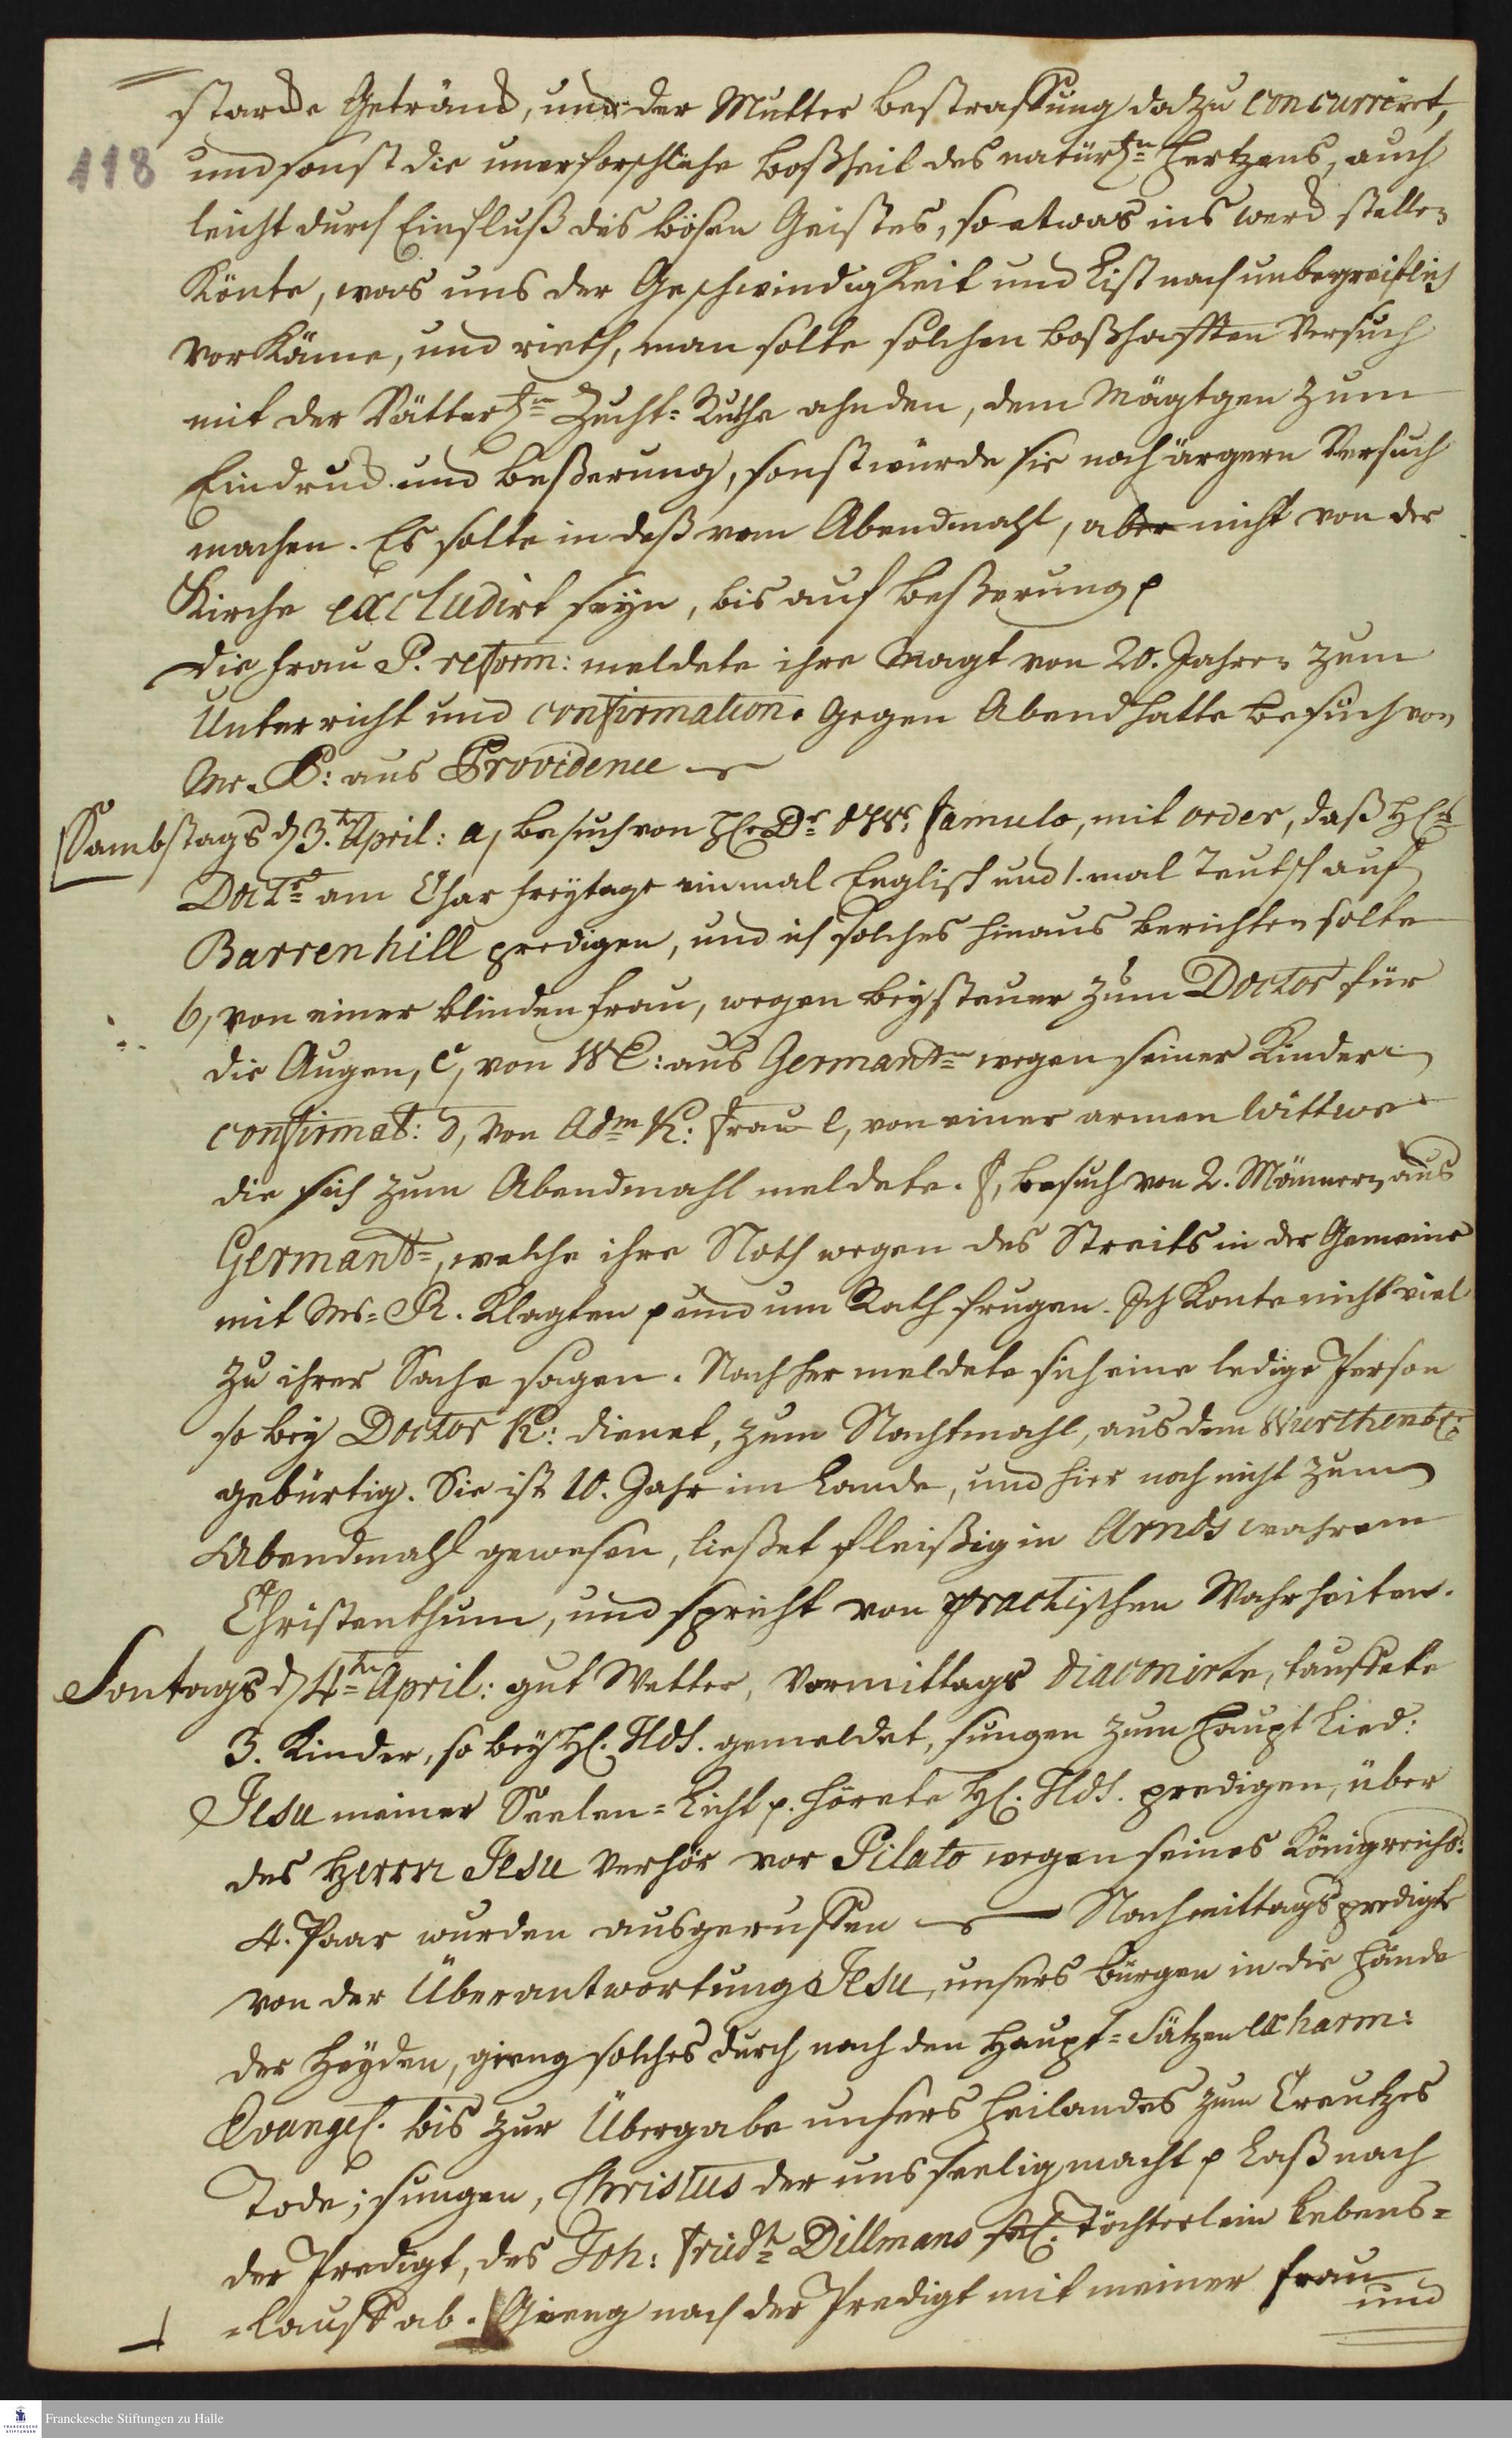 starcke Geträncke, und der Mutter bestraffung dazu concurriret,
118
und sonst die unerforschliche boßheit des natürln Hertzens, auch
leicht durch Einfluß des bösen Geistes, so etwas ins werck stellen
Könte, was uns der Geschwindigkeit und List nach unbegreiflich
vorkäme, und rieth, man solte solchen boßhafften Versuch
mit der Vätterln Zucht-Ruthe ahnden, dem Mägtgen zum
Eindruck und beßerung, sonst würde sie noch ärgern Versuch
machen. Es solte in deß vom Abendmahl, aber nicht von der
Kirche excludirt seyn, bis auf beßerung p
die Frau P. reform: meldete ihre Magt von 20. Jahren zum
Unterricht und confirmation. Gegen Abend hatte besuch von
Mr. P: aus Providence
Sambstags d 3.ten April: a, besuch von Dr Famulo, mit order, daß H
Doctr am Charfreytage einmal Englisch und 1.mal Teutsch auf
Barrenhill predigen, und ich solches hinaus berichten solte
b, von einer blinden Frau, wegen beysteuer zum Doctor für
die Augen, c, von W aus Germantn wegen seiner Kinder
confirmat: d, von Adm K: Frau e, von einer armen Wittwe
die sich zum Abendmahl meldete. f, besuch von 2. Männern aus
Germantn, welche ihre Noth wegen des Streits in der Gemeine
mit Mr R. klagten p und um Rath frugen. Ich konte nicht viel
zu ihrer Sache sagen. Nachher meldete sich eine ledige Person
so bey Doctor K: dienet, zum Nachtmahl, aus dem Würthenb:
gebürtig. Sie ist 10. Jahr im Lande, und hier noch nicht zum
Abendmahl gewesen, ließet fleißig in Arnds wahrem
Christenthum, und spricht von practischen Wahrheiten.
Sontags d 4ten April: gut Wetter, Vormittags diaconirte, tauffete
3. Kinder, so bey H. gemeldet, sungen zum Haupt Lied:
Jesu meiner Seelen-Licht p. hörete H. predigen, über
des Herrn Jesu Verhör vor Pilato wegen seines Königreichs:
4. Paar wurden ausgeruffen Nachmittags predigte
von der Überantwortung Jesu, unsers bürgen in die Hände
der Heyden, gieng solches durch nach den Haupt-Sätzen ex harm:
Evangel. bis zur Übergabe unsers Heilandes zum Creutzes
Tode; sungen, Christus der uns seelig macht p Laß nach
der Predigt, des Joh: Fridr Dillmans sel. Töchterlein Lebens-
-lauff ab. Gieng nach der Predigt mit meiner Frau
und
Franckesche Stiftungen zu Halle